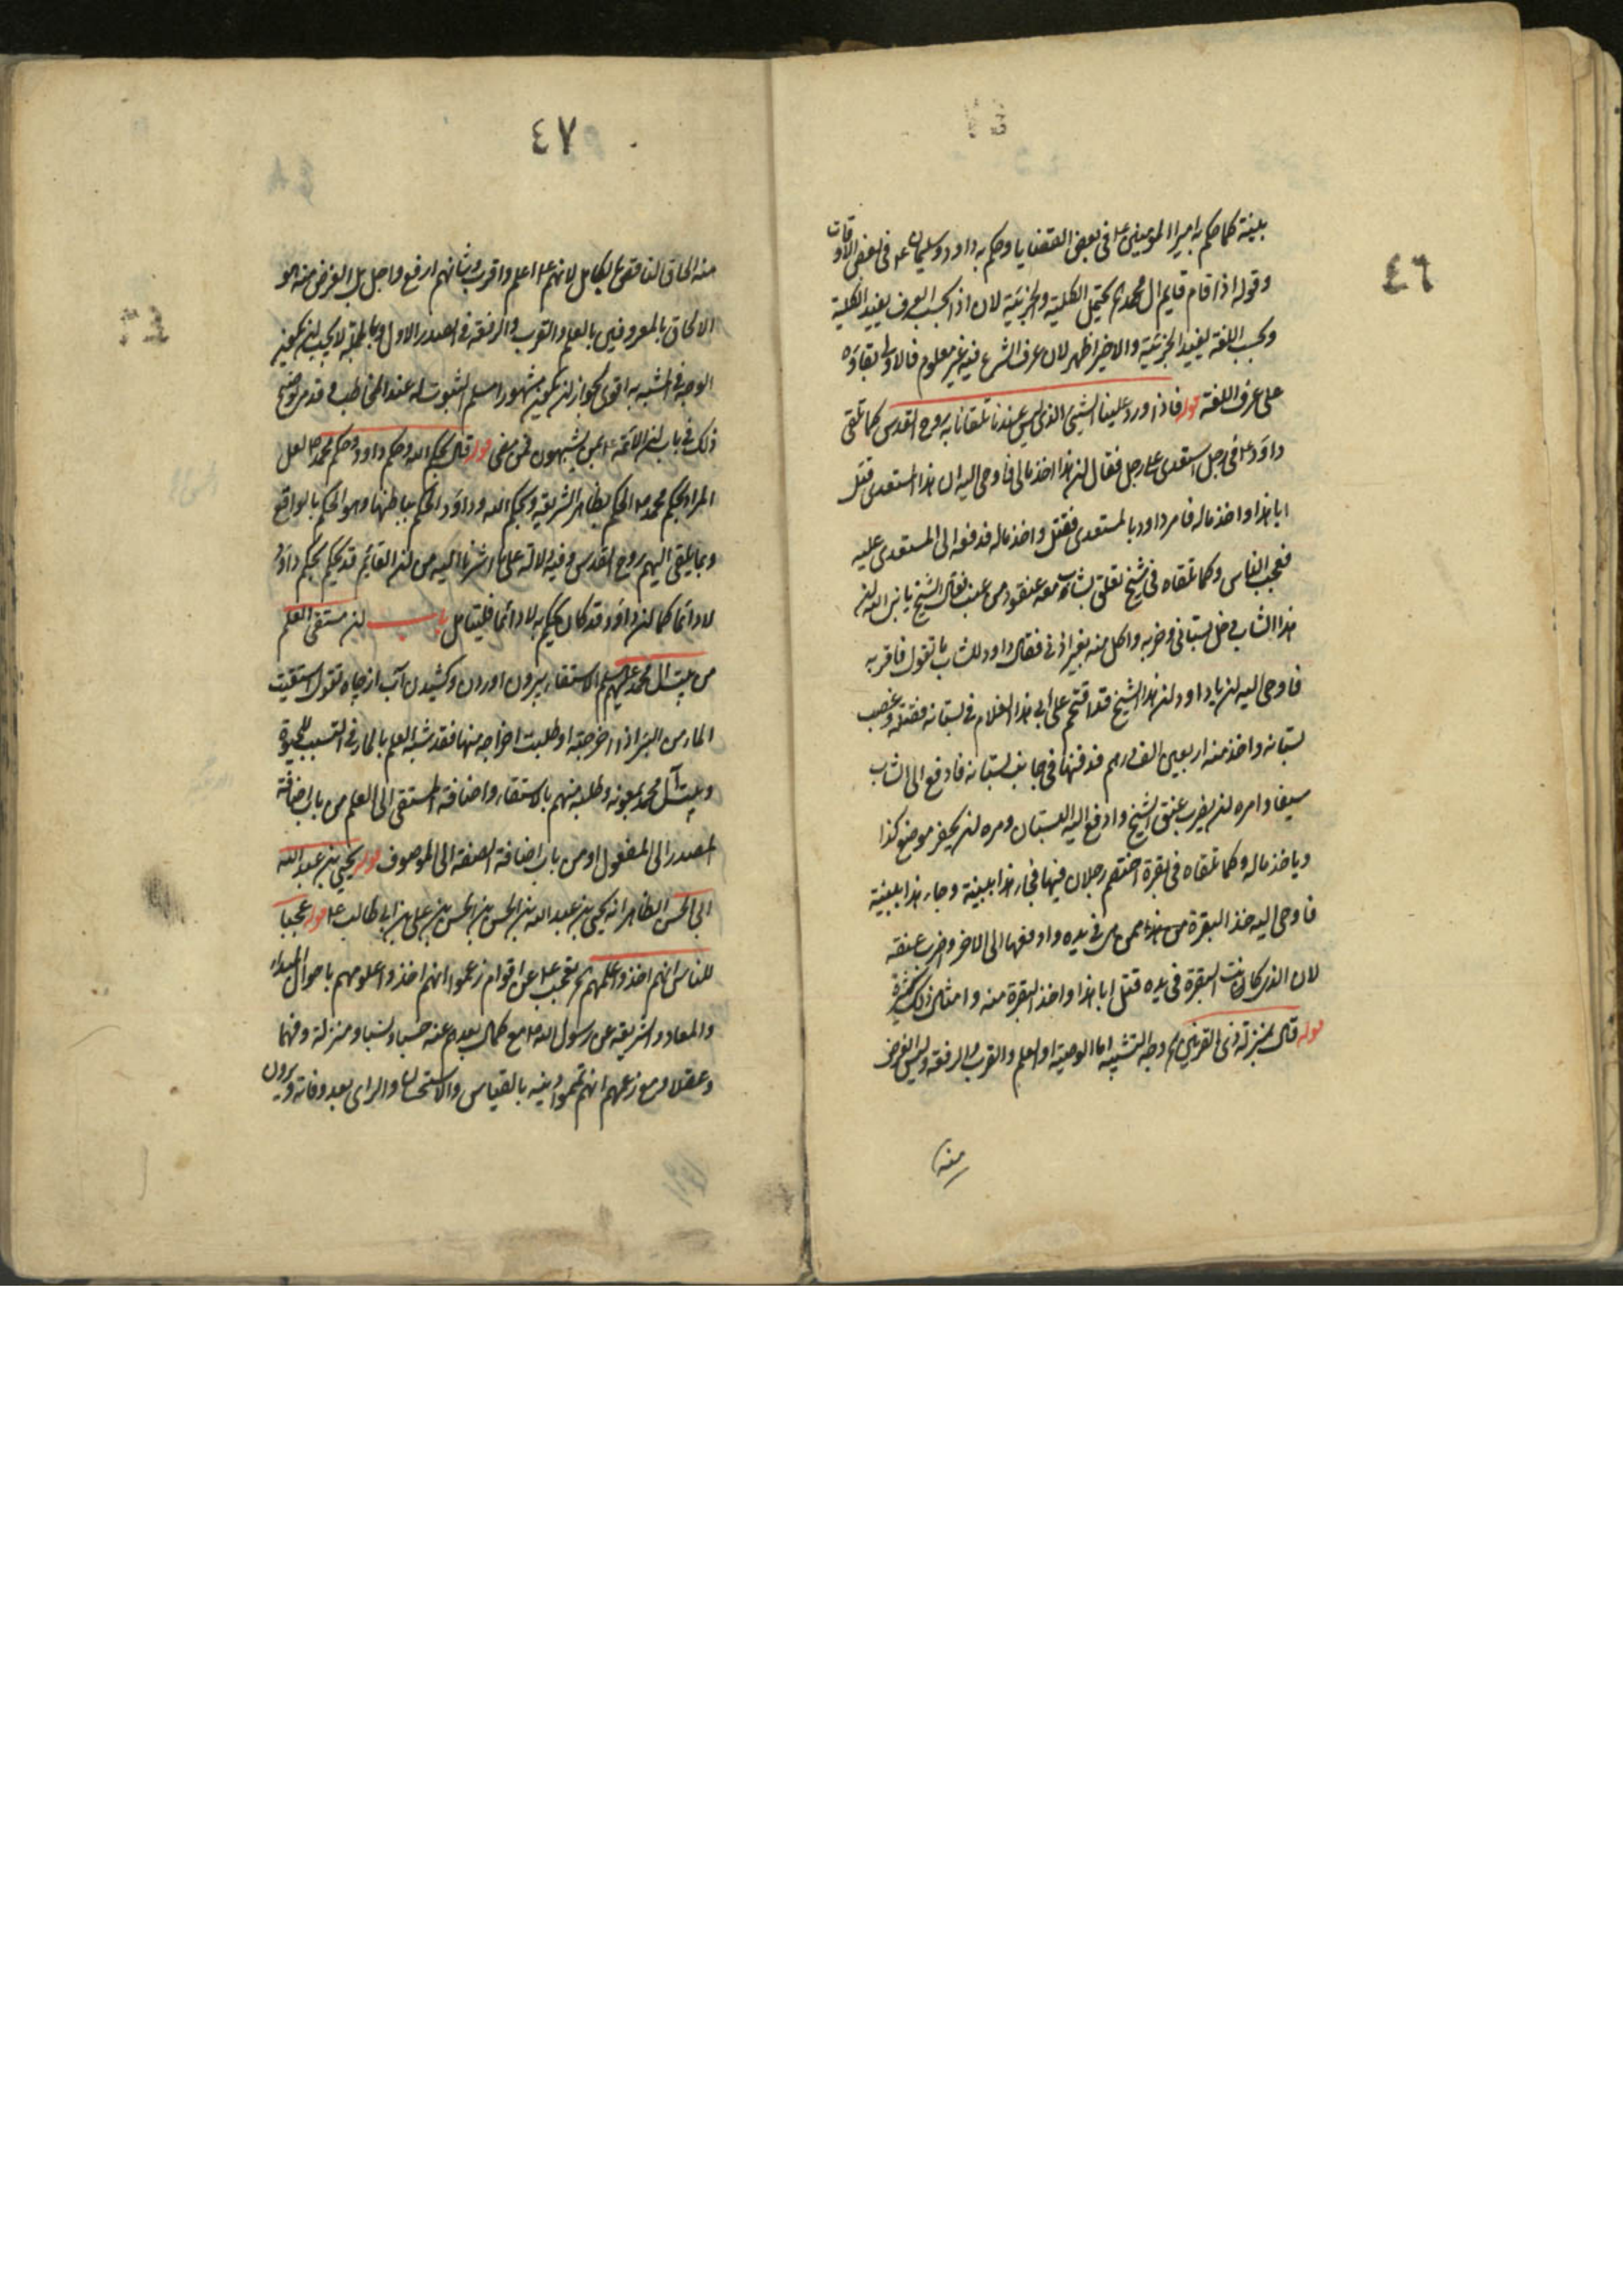 ٤٦
بينة كما حكم به امير المومنين ع في بعض القضايا وحكم به داود وسليمان ع في بعض الاوقات
وقوله اذا قام قايم ال محمد ع يحتمل الكلية والجزئية لان اذا بحسب العرف يفيد الكلية
وبحسب اللغة يفيد الجزئية والاخير اظهر لان عرف الشرع فيه غير معلوم فالاولى بقاؤه
على عرف اللغة قوله فاذا ورد علينا الشيئ الذي ليس عندنا تلقانا به روح القدس كما تلقى
داود ع في رجل استعدى على رجل فقال ان هذا اخذ مالى فاوحى اليه ان هذا المستعدى قتل
ابا هذا واخذ ماله فامر داود بالمستعدى فقتل واخذ ماله فدفعه الى المستعدى عليه
فعجب الناس وكما تلقاه في شيخ تعلق بشاب معه عنقود من عنب فقال الشيخ يا نبى الله ان
هذا الشاب دخل بستانى وخربه واكل منه بغير اذنى فقال داود للشاب ما تقول فاقر به
فاوحى اليه ان يا داود ان هذا الشيخ قد اقتحم على ابى هذا الغلام في بستانه فقتله وغصب
بستانه واخذ منه اربعين الف درهم فدفنها في جانب بستانه فادفع الى الشاب
سيفا وامره ان يضرب عنق الشيخ وادفع اليه البستان ومره ان يحفر موضع كذا
وياخذ ماله وكما تلقاه في بقرة اختصم رجلان فيها فجاء هذا ببينة وجاء هذا ببينة
فاوحى اليه خذ البقرة من هذا ممن هى في يده وادفعها الى الاخر واضرب عنقه
لان الذى كانت البقرة في يده قتل ابا هذا واخذ البقرة منه وامثال ذلك كثيرة
قوله قال بمنزلة ذى القرنين اه وجه التشبيه اما الوصية او العلم والقرب والرفعة وليس الغرض
منه
٤٧
منه الحاق الناقص بالكامل لانهم ع اعلم واقرب وشانهم ارفع واجل بل الغرض منه هو
الالحاق بالمعروفين بالعلم والقرب والرفعة في الصدر الاول وبالجملة لا يجب ان يكون
الوجه في المشبه به اقوى لجواز ان يكون مشهورا مسلم الثبوت له عند المخاطب وقد مر توضيح
ذلك في باب ان الائمة ع بمن يشبهون فمن مضى قوله قال بحكم الله وحكم داود وحكم محمد ص لعل
المراد بحكم محمد ص الحكم بظاهر الشريعة وبحكم الله وداود الحكم بباطنها وهو الحكم بالواقع
وبما يلقى اليهم روح القدس وفيه دلالة على ما اشرنا اليه من ان القايم قد يحكم بحكم داود
لا دائما كما ان داود قد كان يحكم به لا دائما فليتامل باب ان مستقى العلم
من بيت ال محمد عليهم السلم الاستقاء بيرون اوردن وكشيدن آب از چاه تقول استقيت
الماء من البئر اذا اخرجته او طلبت اخراجه منها فقد شبه العلم بالماء في التسبب للحيوة
وبيت آل محمد بعيونه وطلبه منهم بالاستقاء واضافة المستقى الى العلم من باب اضافة
المصدر الى المفعول او من باب اضافة الصفة الى الموصوف قوله يحيى بن عبد الله
ابى الحسن الظاهر انه يحيى بن عبد الله بن الحسن بن الحسن بن على بن ابى طالب ع قوله عجبا
للناس انهم اخذوا علمهم اه تعجب ع من اقوام زعموا انهم اخذوا علومهم باحوال المبداء
والمعاد والشريعة عن رسول الله ص مع كمال بعدهم عنه حسبا ونسبا ومنزلة وفهما
وعقلا ومع زعمهم انهم تمموا دينه بالقياس والاستحسان والراى بعد وفاته ويرون